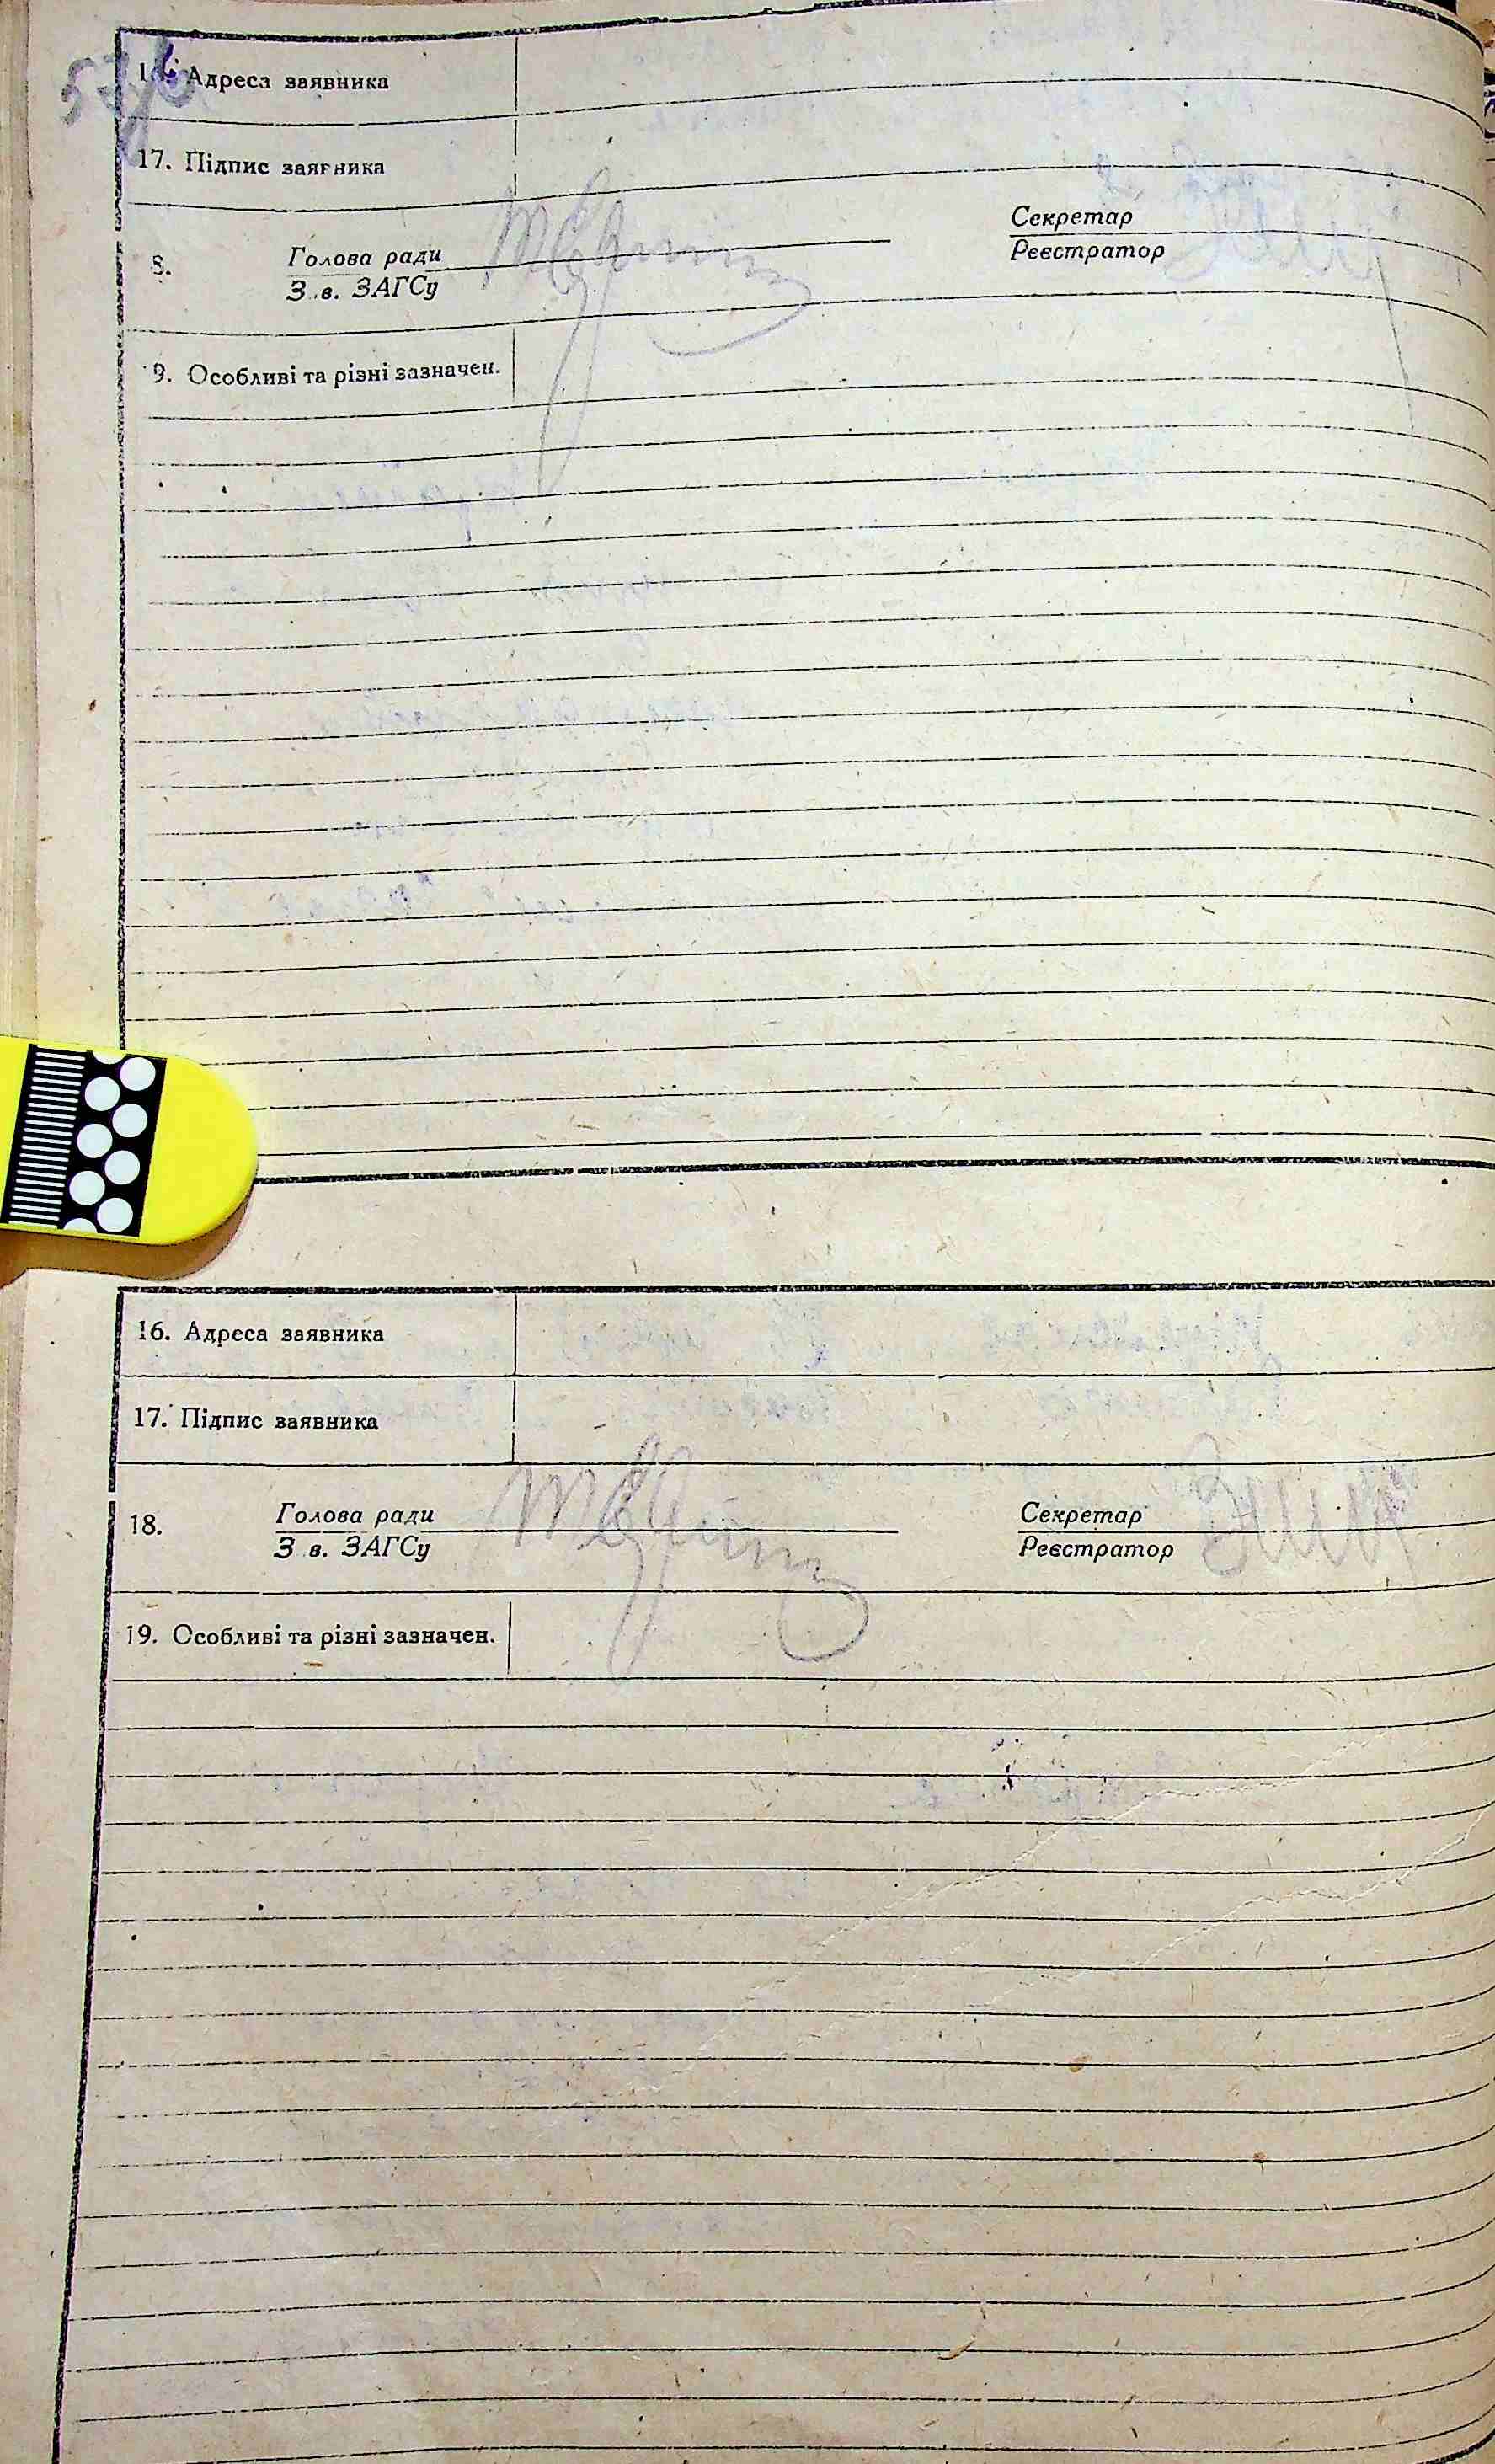 16. Адреса заявника
17. Підпис заявника
8. Голова ради Секретар
З в. ЗАГСу Реєстратор
9. Особливі та різні зазначен.
16. Адреса заявника
17. Підпис заявника
18. Голова ради Секретар
З в. ЗАГСу Реєстратор
19. Особливі та різні зазначен.